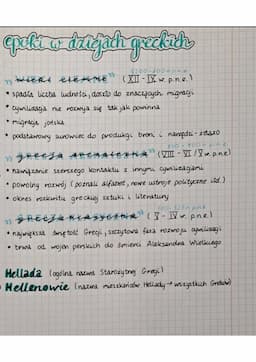 epoki w dziejach greckich
"wieki ciemne" (XII - IX w. p.n.e.)
• spadła liczba ludności, doszło do znaczących migracji
• cywilizacja nie rozwija się tak jak powinna
• migracja jońska
• podstawowy surowiec do produkcji broni i narzędzi - żelazo
"grecja archaiczna" (VIII - VI / V w. p.n.e.)
• nawiązanie szerszego kontaktu z innymi cywilizacjami
• powolny rozwój (poznali alfabet, nowe ustroje polityczne itd.)
• okres rozkwitu greckiej sztuki i literatury
"grecja klasyczna" (V - IV w. p.n.e.)
• największa świetność Grecji, szczytowa faza rozwoju cywilizacji
• trwa od wojen perskich do śmierci Aleksandra Wielkiego
Hellada (ogólna nazwa Starożytnej Grecji)
• Hellenowie (nazwa mieszkańców Hellady → wszystkich Greków)